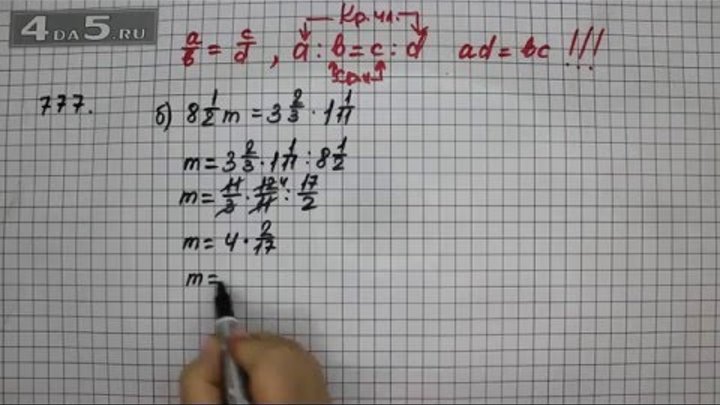 4DA5.RU
Кр. чл.
a/b = c/d , a : b = c : d   ad = bc !!!
777. б) 8 1/2 m = 3 2/3 · 1 1/11
m = 3 2/3 · 1 1/11 : 8 1/2
m = 11/3 · 12/11 4 : 17/2
m = 4 · 2/17
m =